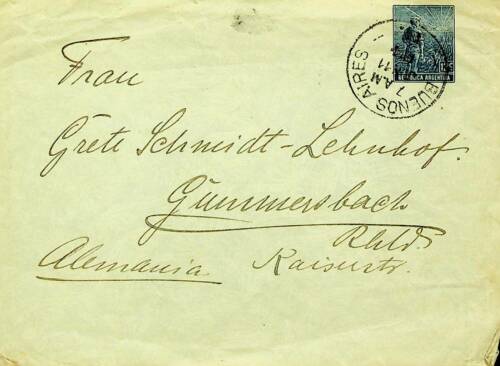 Frau
Grete Schmidt-Lehnhof.
Gummersbach
Rhld.
Alemania Kaiserstr.
BUENOS AIRES
7 AM
11
REPUBLICA ARGENTINA